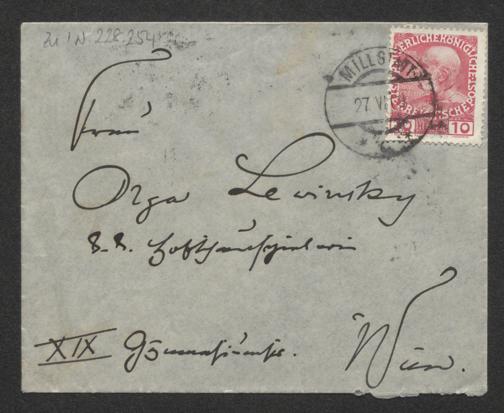 Zu I N 228.254
MILLSTATT
27. VI
KAISERLICHE KÖNIGLICHE
ÖSTERREICHISCHE POST
10 10
Frau
Olga Lewinsky
k. k. Hofschauspielerin
XIX
Wien.